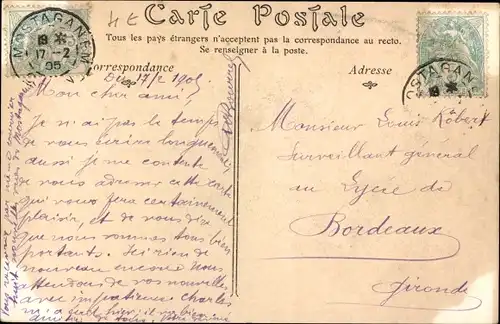 HE
Carte Postale
Tous les pays étrangers n'acceptent pas la correspondance au recto.
Se renseigner à la poste.
Correspondance
Adresse
MOSTAGANEM
19 *
17-2
05
MOSTAGANEM
19 *
17/2 1905
Mon cher ami,
Je n'ai pas le temps
de vous écrire longuement
aussi je me contente
de vous adresser cette carte
qui vous fera certainement
plaisir, et de vous dire
que nous sommes tous bien
portants. Ici rien de
nouveau encore. Nous
attendons de vos nouvelles
avec impatience Charles
Monsieur Louis Robert
Surveillant général
au Lycée de
Bordeaux
Gironde